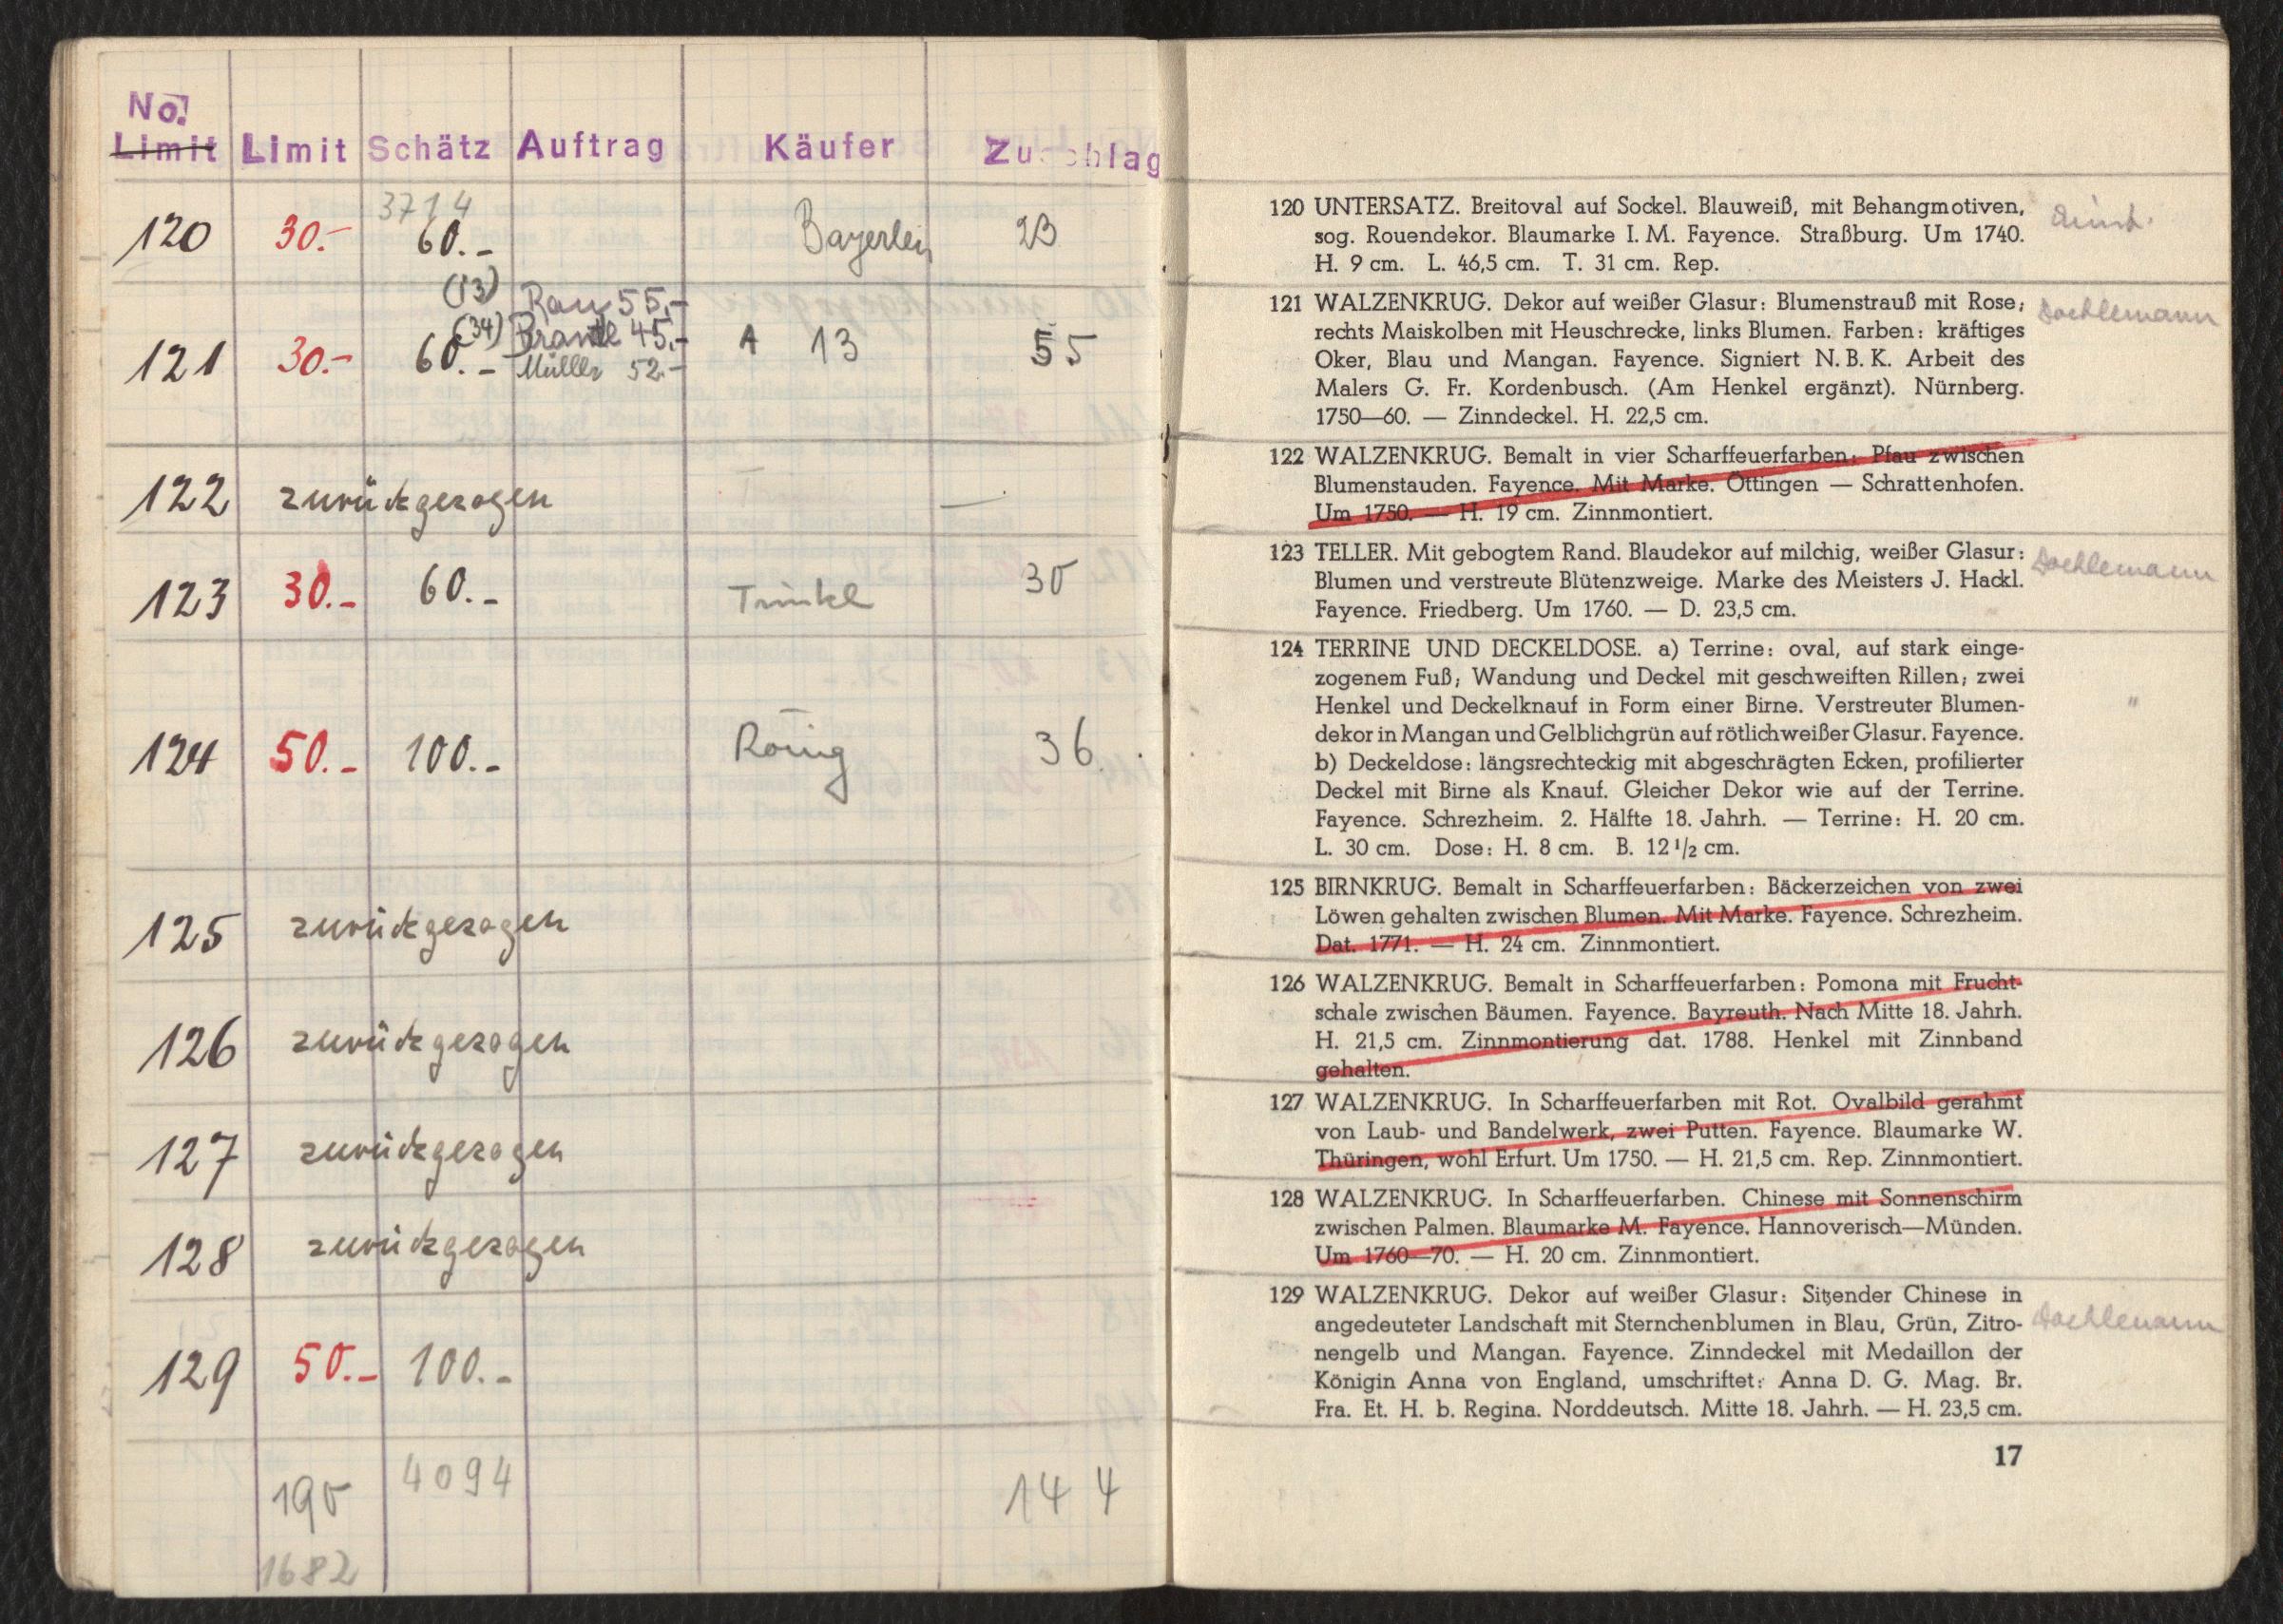 No.
Limit Limit Schätz Auftrag Käufer Zuschlag
3714
120 30.- 60.- Bayerlein 23
(13) Rau 55.-
(34) Brandl 45.-
121 30.- 60.- Müller 52.- A 13 55
122 zurückgezogen —
123 30.- 60.- Trinkl 30
124 50.- 100.- Rönig 36.
125 zurückgezogen
126 zurückgezogen
127 zurückgezogen
128 zurückgezogen
129 50.- 100.-
190 4094 144
1682
120 UNTERSATZ. Breitoval auf Sockel. Blauweiß, mit Behangmotiven,
sog. Rouendekor. Blaumarke I. M. Fayence. Straßburg. Um 1740.
H. 9 cm. L. 46,5 cm. T. 31 cm. Rep.
121 WALZENKRUG. Dekor auf weißer Glasur: Blumenstrauß mit Rose; Doehlemann
rechts Maiskolben mit Heuschrecke, links Blumen. Farben: kräftiges
Oker, Blau und Mangan. Fayence. Signiert N. B. K. Arbeit des
Malers G. Fr. Kordenbusch. (Am Henkel ergänzt). Nürnberg.
1750—60. — Zinndeckel. H. 22,5 cm.
122 WALZENKRUG. Bemalt in vier Scharffeuerfarben: Pfau zwischen
Blumenstauden. Fayence. Mit Marke. Öttingen — Schrattenhofen.
Um 1750. — H. 19 cm. Zinnmontiert.
123 TELLER. Mit gebogtem Rand. Blaudekor auf milchig, weißer Glasur: Doehlemann
Blumen und verstreute Blütenzweige. Marke des Meisters J. Hackl.
Fayence. Friedberg. Um 1760. — D. 23,5 cm.
124 TERRINE UND DECKELDOSE. a) Terrine: oval, auf stark einge-
zogenem Fuß; Wandung und Deckel mit geschweiften Rillen; zwei
Henkel und Deckelknauf in Form einer Birne. Verstreuter Blumen- "
dekor in Mangan und Gelblichgrün auf rötlichweißer Glasur. Fayence.
b) Deckeldose: längsrechteckig mit abgeschrägten Ecken, profilierter
Deckel mit Birne als Knauf. Gleicher Dekor wie auf der Terrine.
Fayence. Schrezheim. 2. Hälfte 18. Jahrh. — Terrine: H. 20 cm.
L. 30 cm. Dose: H. 8 cm. B. 12 1/2 cm.
125 BIRNKRUG. Bemalt in Scharffeuerfarben: Bäckerzeichen von zwei
Löwen gehalten zwischen Blumen. Mit Marke. Fayence. Schrezheim.
Dat. 1771. — H. 24 cm. Zinnmontiert.
126 WALZENKRUG. Bemalt in Scharffeuerfarben: Pomona mit Frucht-
schale zwischen Bäumen. Fayence. Bayreuth. Nach Mitte 18. Jahrh.
H. 21,5 cm. Zinnmontierung dat. 1788. Henkel mit Zinnband
gehalten.
127 WALZENKRUG. In Scharffeuerfarben mit Rot. Ovalbild gerahmt
von Laub- und Bandelwerk, zwei Putten. Fayence. Blaumarke W.
Thüringen, wohl Erfurt. Um 1750. — H. 21,5 cm. Rep. Zinnmontiert.
128 WALZENKRUG. In Scharffeuerfarben. Chinese mit Sonnenschirm
zwischen Palmen. Blaumarke M. Fayence. Hannoverisch—Münden.
Um 1760—70. — H. 20 cm. Zinnmontiert.
129 WALZENKRUG. Dekor auf weißer Glasur: Sitzender Chinese in
angedeuteter Landschaft mit Sternchenblumen in Blau, Grün, Zitro- Doehlemann
nengelb und Mangan. Fayence. Zinndeckel mit Medaillon der
Königin Anna von England, umschriftet: Anna D. G. Mag. Br.
Fra. Et. H. b. Regina. Norddeutsch. Mitte 18. Jahrh. — H. 23,5 cm.
17